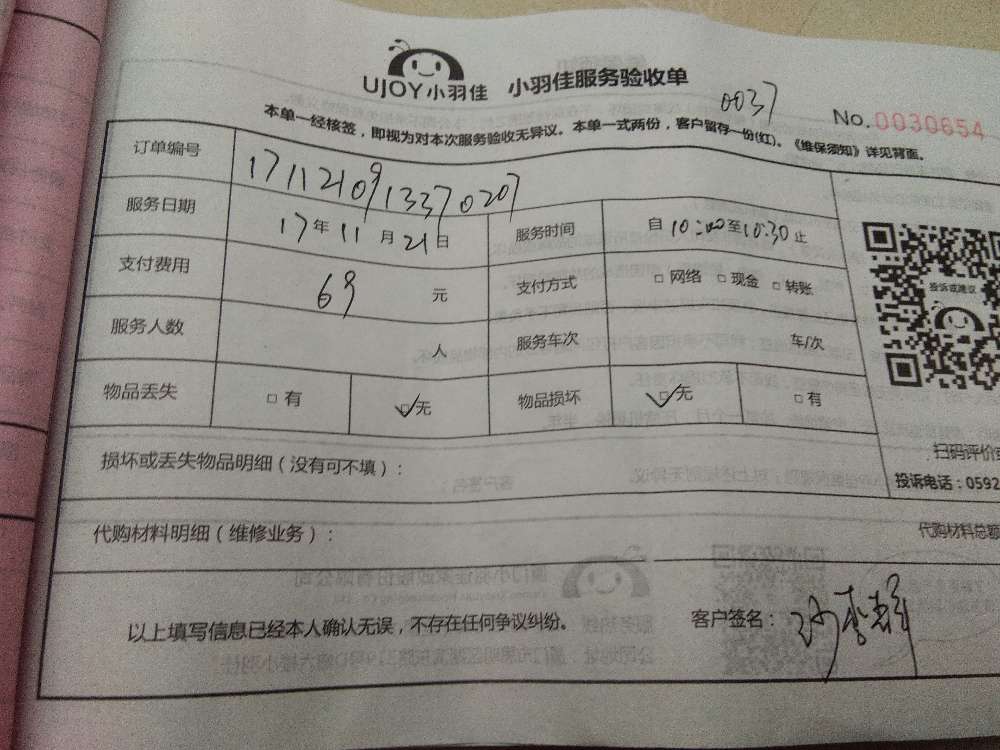 UJOY小羽佳 小羽佳服务验收单
0037
No.0030654
本单一经核签，即视为对本次服务验收无异议。本单一式两份，客户留存一份(红)。《维保须知》详见背面。
订单编号 1711210913370207
服务日期 17年11月21日 服务时间 自10:00至10:30止
支付费用 69 元 支付方式 □网络 □现金 □转账
投诉或建议
服务人数 人 服务车次 车/次
物品丢失 □有 ☑无 物品损坏 ☑无 □有
扫码评价
损坏或丢失物品明细（没有可不填）：
投诉电话：0592
代购材料明细（维修业务）： 代购材料总额
以上填写信息已经本人确认无误，不存在任何争议纠纷。 客户签名：